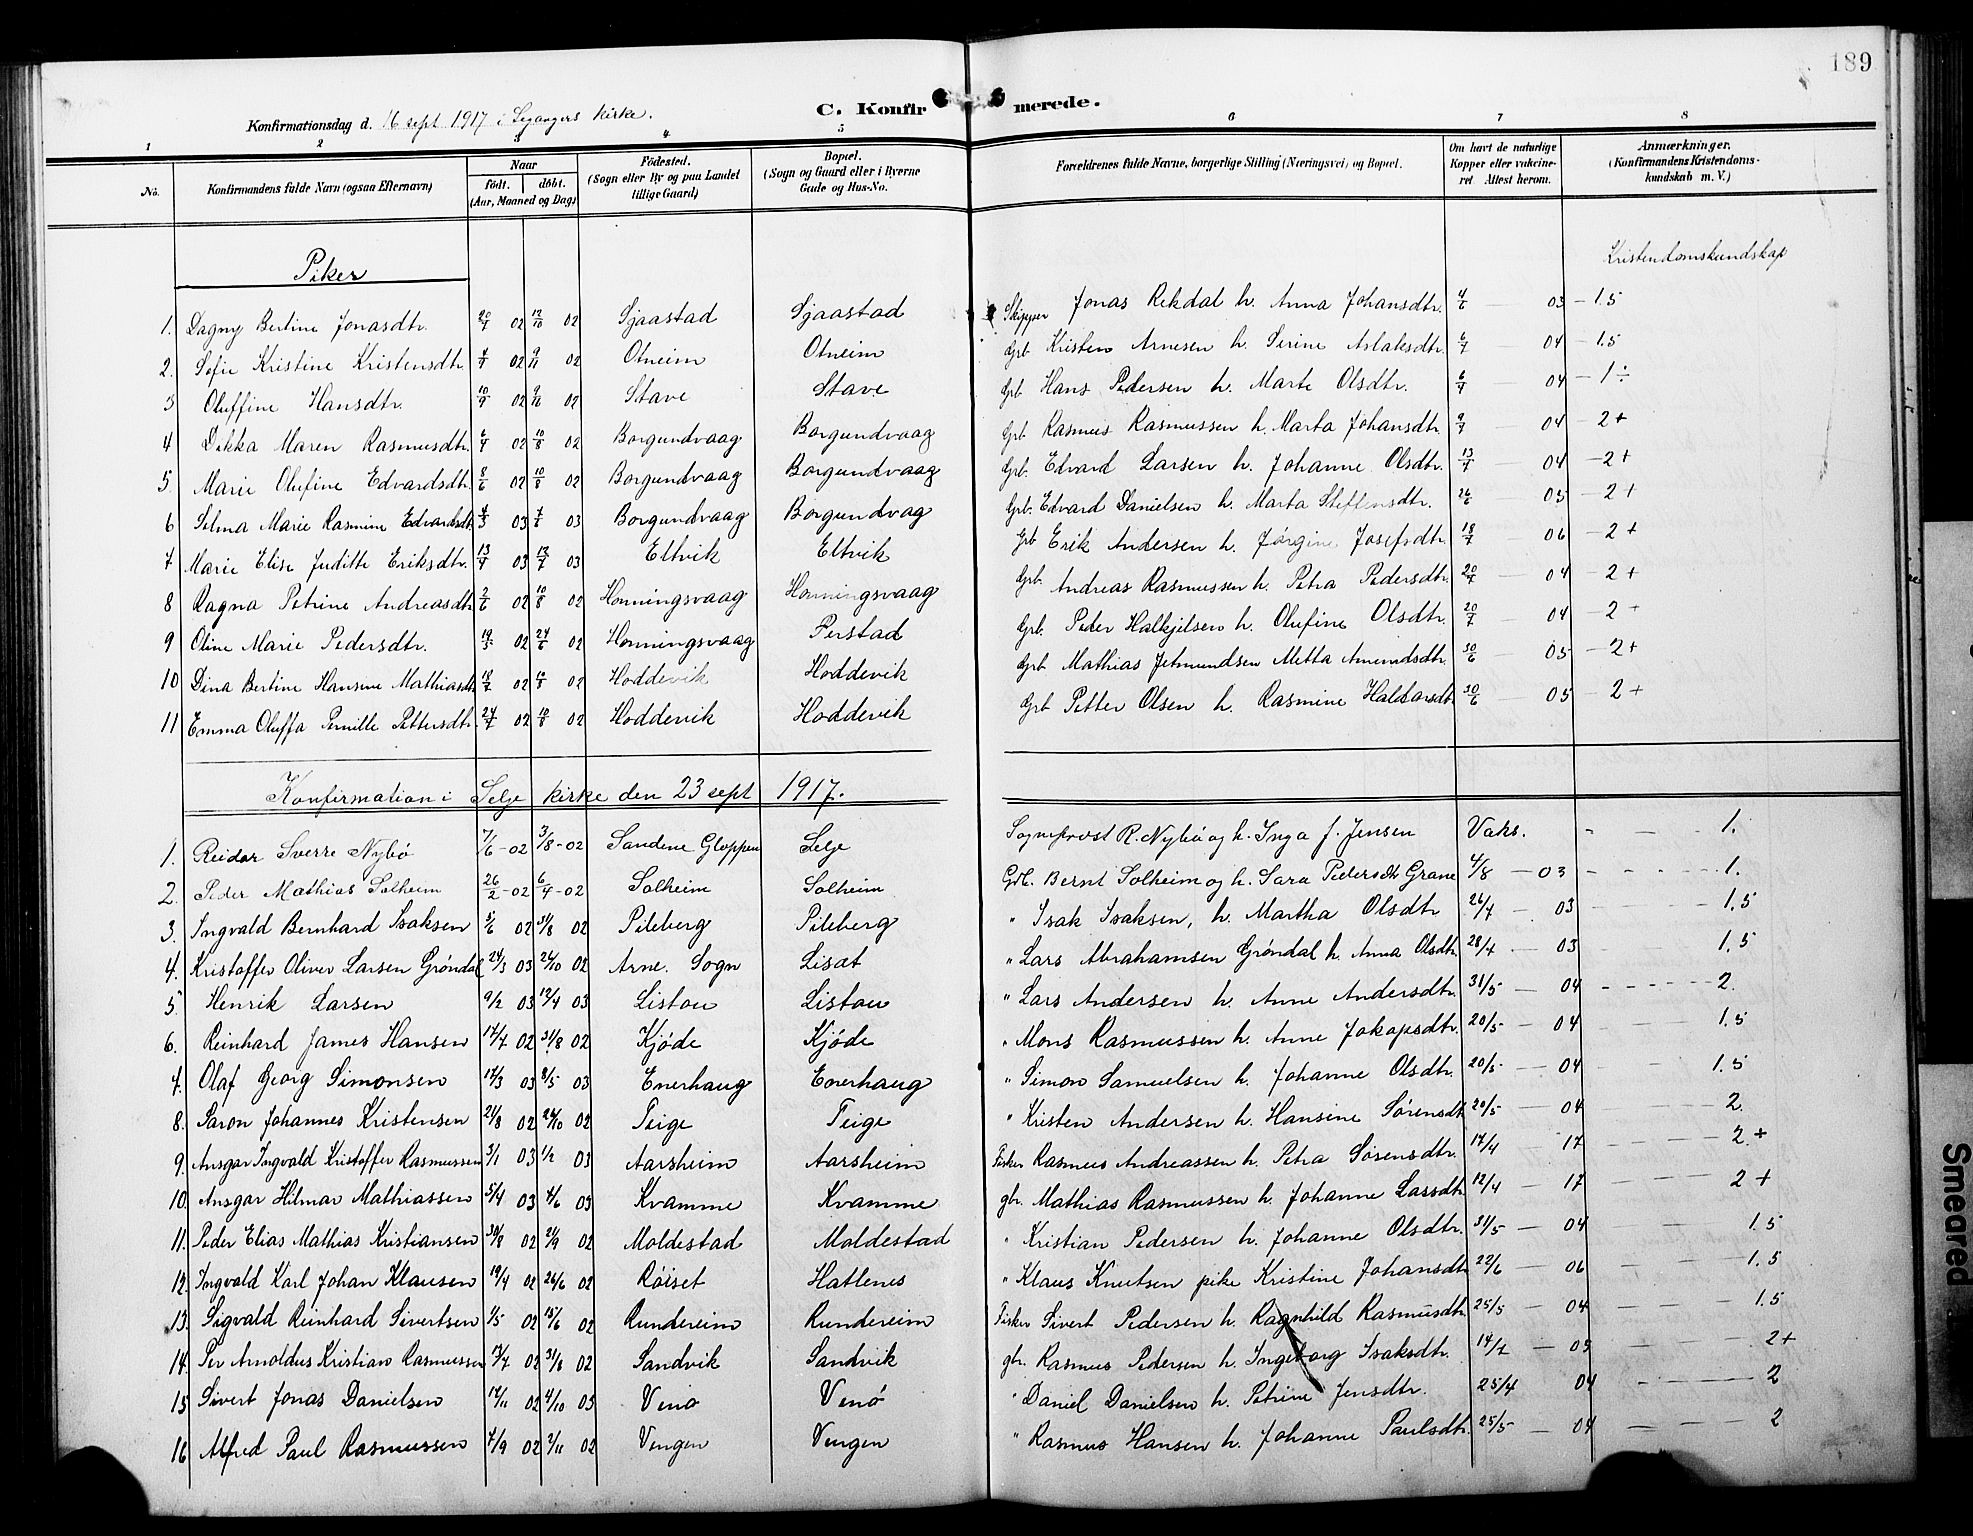 189
C. Konfirmerede.
Konfirmationsdag d. 16 sept 1917 i Leganger kirke.
1 2 3 4 5 6 7 8
No. Konfirmandens fulde Navn (ogsaa Efternavn) Naar født. døbt. (Aar, Maaned og Dag) Fødested. (Sogn eller By og paa Landet tillige Gaard) Bopæl. (Sogn og Gaard eller i Byerne Gade og Hus-No. Forældrenes fulde Navne, borgerlige Stilling (Næringsvei) og Bopæl. Om havt de naturlige Kopper eller vakcineret Attest herom. Anmærkninger. (Konfirmandens Kristendomskundskab m. V.)
Piker
Kristendomskundskap
1. Dagny Bertine Jonasdtr. 20/7 02 12/10 02 Sjaastad Sjaastad Skipper Jonas Rekdal h. Anna Johansdtr. 4/6 — 03 — 1.5
2. Sofie Kristine Kristensdtr. 4/9 02 9/11 02 Otneim Otneim Grb. Kristen Arnesen h. Serine Aslaksdtr. 6/7 — 04 — 1.5
3 Oluffine Hansdtr. 10/9 02 02 Stave Stave Grb Hans Pedersen h. Marte Olsdtr. 6/7 — 04 — 1 ÷
4 Dikka Maren Rasmusdtr. 02 10/8 02 Borgundvaag Borgundvaag Grb. Rasmus Rasmussen h. Marta Johansdtr. 9/7 04 — 2+
5. Marie Olufine Edvardsdtr. 8/6 02 10/8 02 Borgundvaag Borgundvaag Grb. Edvard Larsen h. Johanne Olsdtr. 13/7 — 04 — 2+
6 Selma Marie Rasmine Edvardsdt. 03 03 Borgundvaag Borgundvag Grb. Edvard Danielsen h. Marta Steffensdtr. 26/6 — 05 — 2+
7 Marie Elise Juditte Eriksdtr. 03 03 Eltvik Eltvik Grb Erik Andersen h. Jørgine Josefsdtr. 18/7 — 06 — 2+
8 Ragna Petrine Andreasdtr 2/6 02 10/8 02 Honningsvaag Honningsvaag Grb. Andreas Rasmussen h. Petra Pedersdtr. 20/7 — 04 — 2+
9 Oline Marie Pedersdtr. 19/5 02 24/6 02 Honningsvaag Perstad Grb. Peder Halkjelsen h. Olufine Olsdtr. 20/7 — 04 — 2+
10 Dina Bertine Hansine Mathiasdt. 18/7 02 10/8 02 Hoddevik Hoddevik Grb Mathias Jetmundsen Metta Amundsdtr. 30/6 — 05 — 2+
11 Emma Oluffa Pernille Pettersdtr. 24/7 02 10/8 02 Hoddevik Hoddevik Grb Petter Olsen h. Rasmine Haldorsdt. 30/6 — 05 — 2+
Konfirmation i Selje kirke den 23 sept 1917.
1. Reidar Sverre Nybø 7/6 - 02 3/8 - 02 Sandene Gloppen Selje Sogneprost R. Nybø og h. Inga f. Jensen Vaks. - — — 1.
2. Peder Mathias Solheim 26/2 - 02 6/4 - 02 Solheim Solheim Grb. Bernt Solheim og h. Sara Pedersdt Grane 4/8 — 03 - - - - 1.
3. Ingvald Bernhard Isaksen 5/6 02 31/8 02 Pileberg Pileberg " Isak Isaksen, h. Martha Olsdtr 26/7 — 03 — 1.5
4. Kristoffer Oliver Larsen Grøndal 24/3 03 26/10 02 Arne. Sogn Lisæt " Lars Abrahamsen Grøndal h. Anna Olsdtr. 28/7 — 03 — 1.5
5 Henrik Larsen 9/2 03 12/4 03 Listou Listou " Lars Andersen h. Anne Andersdtr. 31/5 — 04 - - - - 2.
6. Reinhard James Hansen 17/7 02 31/8 02 Kjøde Kjøde " Mons Rasmussen h. Anne Jakopsdtr. 20/5 — 04 — 1.5
7. Olaf Georg Simonsen 17/3 03 8/5 03 Enerhaug Enerhaug " Simon Samuelsen h. Johanne Olsdtr. 20/5 — 04 — 1.5
8. Saron Johannes Kristensen 21/8 02 26/10 02 Teige Teige " Kristen Andersen h. Hansine Sørensdt. 20/5 — 04 — 2.
9. Ansgar Ingvald Kristoffer Rasmussen 3/1 03 1/2 03 Aarsheim Aarsheim Fisker Rasmus Andreassen h. Petra Sørensdtr. 17/4 — 17 — 2.+
10. Ansgar Hilmar Mathiassen 5/4 03 4/6 03 Kvamme Kvamme gbr. Mathias Rasmussen h. Johanne Larsdt. 12/4 — 17 — 2+
11. Peder Elias Mathias Kristiansen 30/8 02 21/9 02 Moldestad Moldestad " Kristian Pedersen h. Johanne Olsdtr. 31/5 — 04 — 1.5
12. Ingvald Karl Johan Klausen 19/4 02 26/6 02 Røiset Hatlenes " Klaus Knutsen pike Kristine Johansdt 22/6 — 06 — 1.5
13. Sigvald Reinhard Sivertsen 1/5 02 15/6 02 Rundereim Rundereim Fisker Sivert Pedersen h. Ragnhild Rasmusdtr 25/5 — 04 — 1.5
14. Per Arnoldus Kristian Rasmussen 17/7 02 31/8 02 Sandvik Sandvik gbr. Rasmus Pedersen h. Ingeborg Isaksdtr. 14/7 — 05 — 2+
15 Sivert Jonas Danielsen 17/11 02 4/10 03 Venø Venø " Daniel Danielsen h. Petrine Jensdtr. 25/4 04 — 2
16 Alfred Paul Rasmussen 7/9 02 2/11 02 Vengen Vengen " Rasmus Hansen h. Johanne Paulsdtr. 25/5 — 04 — 2
Smeared